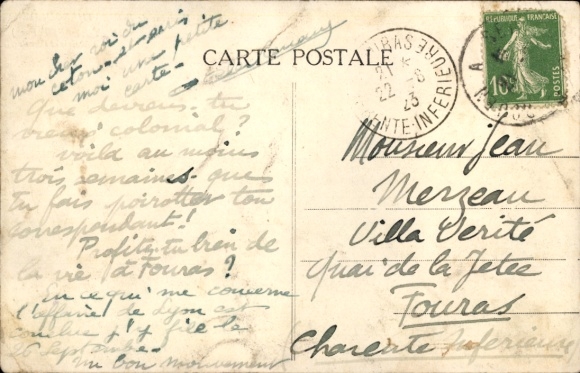 mon cher roi du
coton - et puis
moi une petite
carte -
Que deviens-tu
vieux colonial?
Voilà au moins
trois semaines que
tu fais poirotter ton
correspondant!
Profites-tu bien de
la vie à Fouras?
En ce qui me concerne
l'affaire de Lyon est
conclue j'y file le
26 septembre.
Un bon mouvement
CARTE POSTALE
FOURAS
21
22 - 8
23
CHARENTE-INFERIEURE
REPUBLIQUE FRANÇAISE
10
POSTES
Monsieur Jean
Merzeau
Villa Vérité
Quai de la Jetée
Fouras
Charente Inférieure